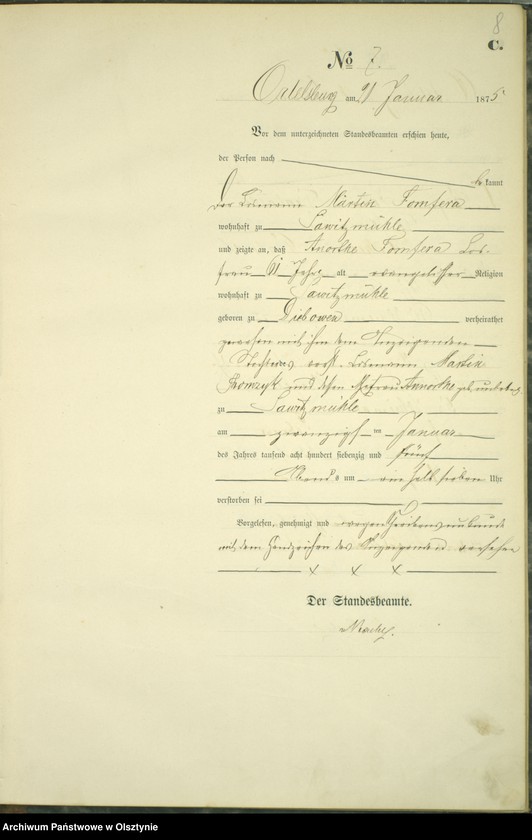 8
C.
No 7.
Ortelsburg am 21 Januar 1875
Vor dem unterzeichneten Standesbeamten erschien heute,
der Person nach
bekannt
der Losmann Martin Tomfera
wohnhaft zu Sawitzmühle
und zeigte an, daß Anorthe Tomfera Los-
frau 61 Jahr alt evangelischer Religion
wohnhaft zu Sawitzmühle
geboren zu Diebowen verheirathet
gewesen mit ihm dem Anzeigenden
Tochter des Losmann Martin
und dessen Ehefrau Annorthe geb. unbekannt
zu Sawitzmühle
am zwanzigsten Januar
des Jahres tausend acht hundert siebenzig und fünf
Abends um ein halb sieben Uhr
verstorben sei
Vorgelesen, genehmigt und wegen Schreibensunkunde
mit dem Handzeichen des Anzeigenden versehen
x x x
Der Standesbeamte.
Archiwum Państwowe w Olsztynie